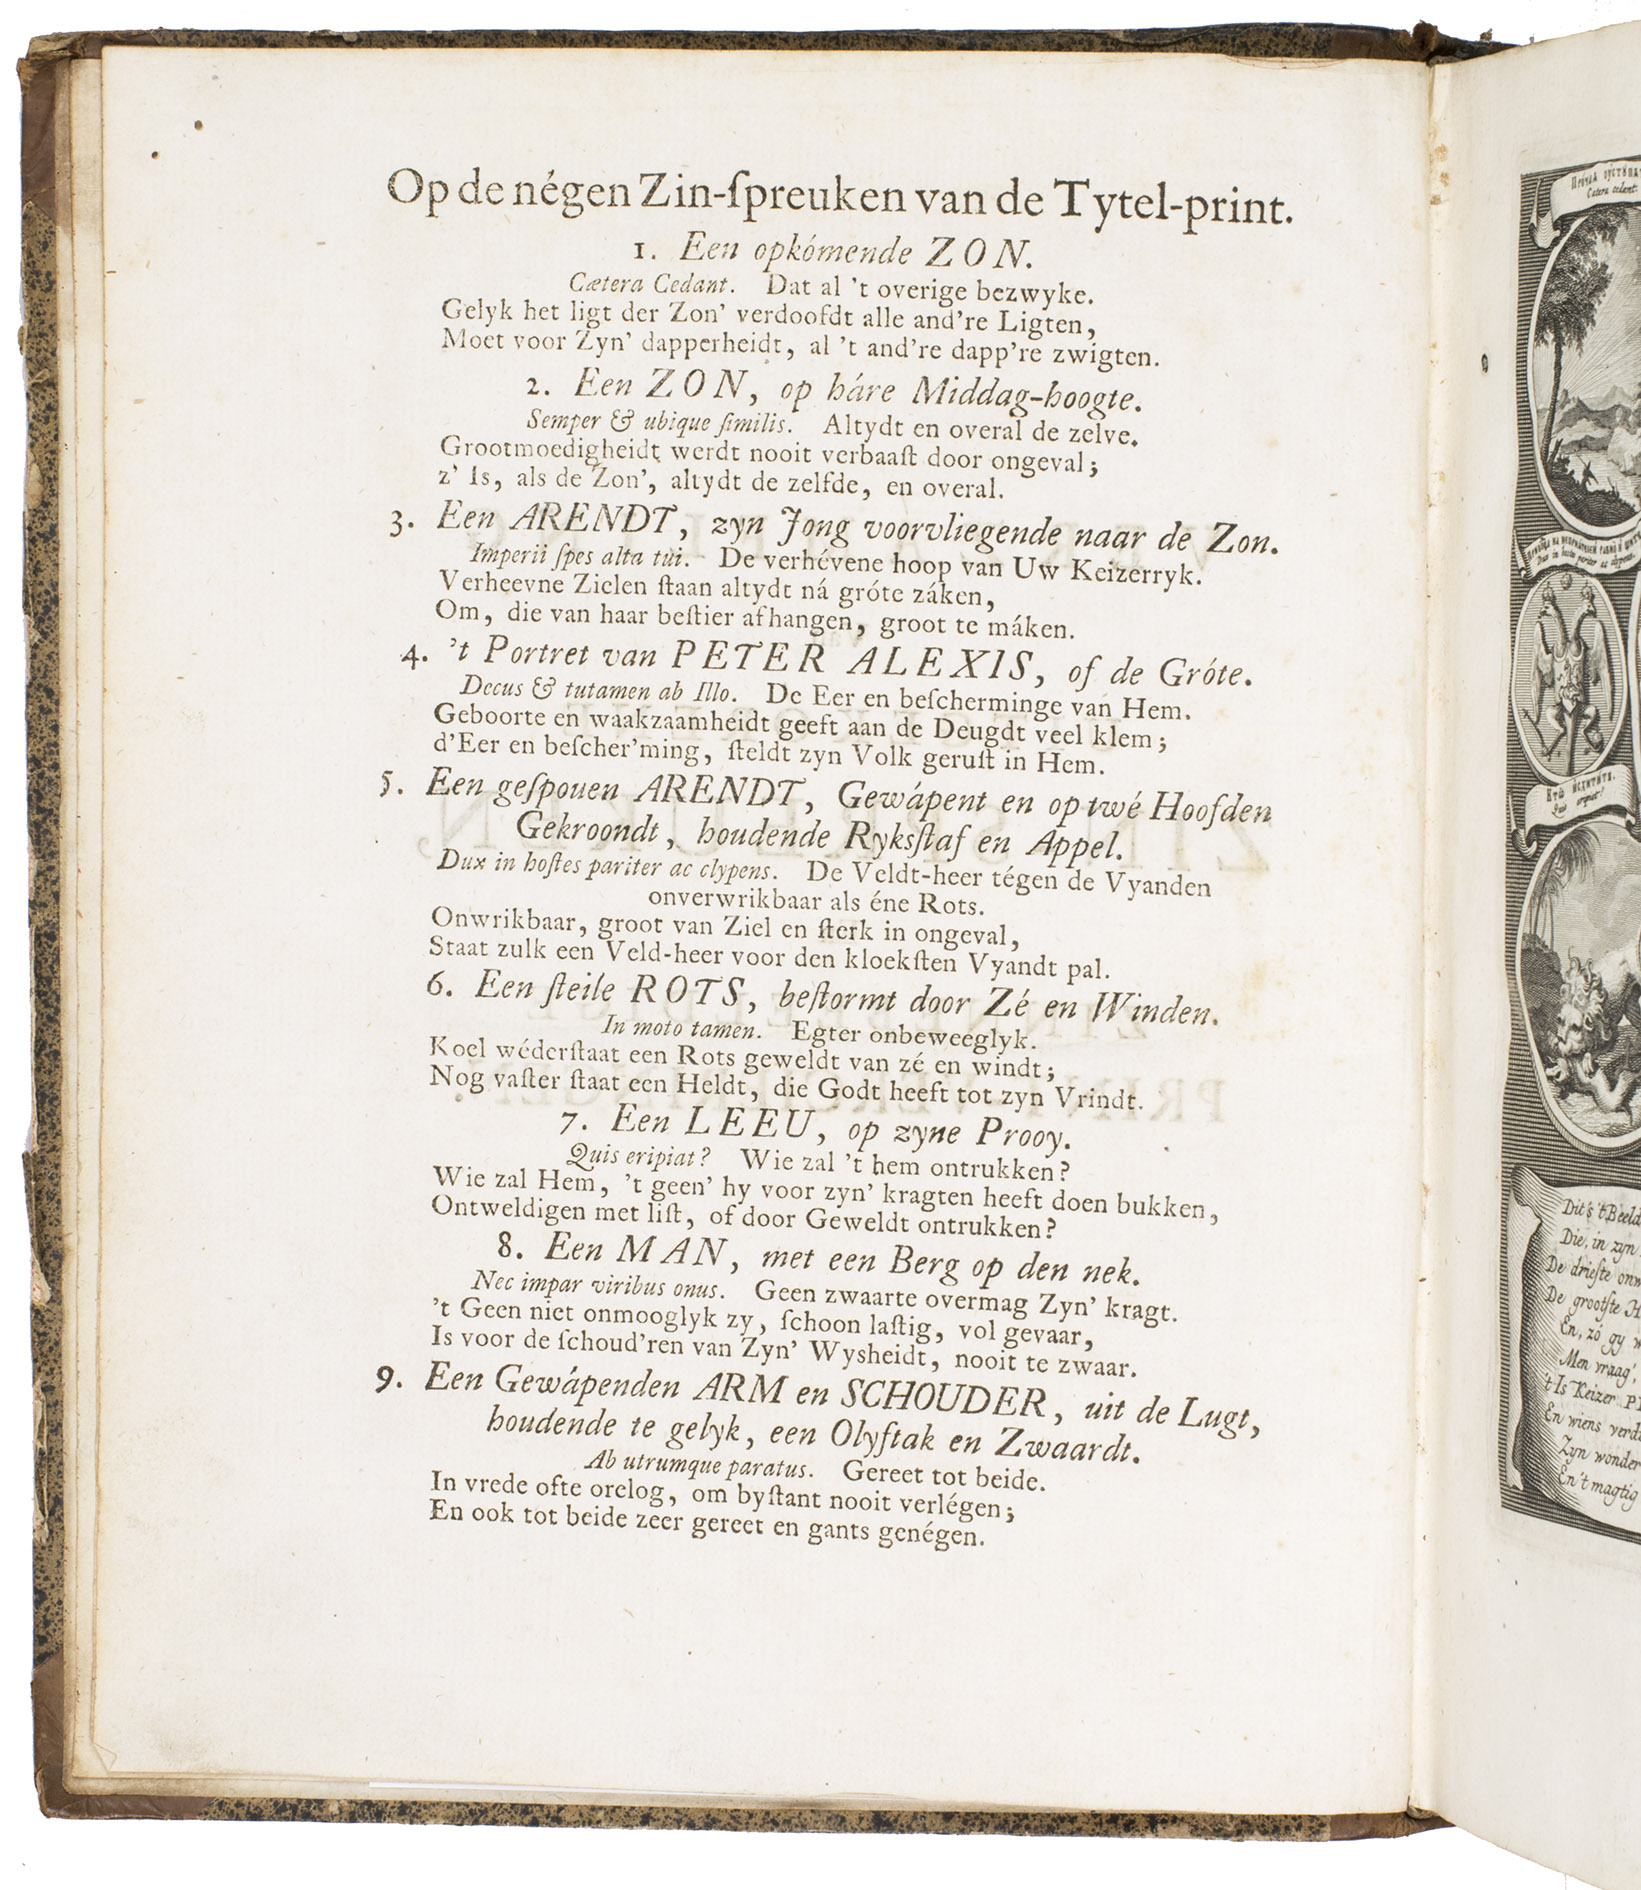 Op de négen Zin-ſpreuken van de Tytel-print.
1. Een opkómende ZON.
Cætera Cedant. Dat al 't overige bezwyke.
Gelyk het ligt der Zon' verdoofdt alle and're Ligten,
Moet voor Zyn' dapperheidt, al 't and're dapp're zwigten.
2. Een ZON, op háre Middag-hoogte.
Semper & ubique ſimilis. Altydt en overal de zelve.
Grootmoedigheidt werdt nooit verbaaſt door ongeval;
z' Is, als de Zon', altydt de zelfde, en overal.
3. Een ARENDT, zyn Jong voorvliegende naar de Zon.
Imperii ſpes alta tui. De verhévene hoop van Uw Keizerryk.
Verheevne Zielen ſtaan altydt ná gróte záken,
Om, die van haar beſtier afhangen, groot te máken.
4. 't Portret van PETER ALEXIS, of de Gróte.
Decus & tutamen ab Illo. De Eer en beſcherminge van Hem.
Geboorte en waakzaamheidt geeft aan de Deugdt veel klem;
d'Eer en beſcher'ming, ſteldt zyn Volk geruſt in Hem.
5. Een geſpouen ARENDT, Gewápent en op twé Hoofden
Gekroondt, houdende Ryksſtaf en Appel.
Dux in hoſtes pariter ac clypens. De Veldt-heer tégen de Vyanden
onverwrikbaar als éne Rots.
Onwrikbaar, groot van Ziel en ſterk in ongeval,
Staat zulk een Veld-heer voor den kloekſten Vyandt pal.
6. Een ſteile ROTS, beſtormt door Zé en Winden.
In moto tamen. Egter onbeweeglyk.
Koel wéderſtaat een Rots geweldt van zé en windt;
Nog vaſter ſtaat een Heldt, die Godt heeft tot zyn Vrindt.
7. Een LEEU, op zyne Prooy.
Quis eripiat? Wie zal 't hem ontrukken?
Wie zal Hem, 't geen' hy voor zyn' kragten heeft doen bukken,
Ontweldigen met liſt, of door Geweldt ontrukken?
8. Een MAN, met een Berg op den nek.
Nec impar viribus onus. Geen zwaarte overmag Zyn' kragt.
't Geen niet onmooglyk zy, ſchoon laſtig, vol gevaar,
Is voor de ſchoud'ren van Zyn' Wysheidt, nooit te zwaar.
9. Een Gewápenden ARM en SCHOUDER, uit de Lugt,
houdende te gelyk, een Olyſtak en Zwaardt.
Ab utrumque paratus. Gereet tot beide.
In vrede ofte orelog, om byſtant nooit verlégen;
En ook tot beide zeer gereet en gants genégen.
Cætera cedant
Dit's 't Beeld
Die, in zyn
De drieſte
De grootſte
En, zó gy
Men vraag',
't Is Keizer
En wiens
Zyn wonder
En 't magtig